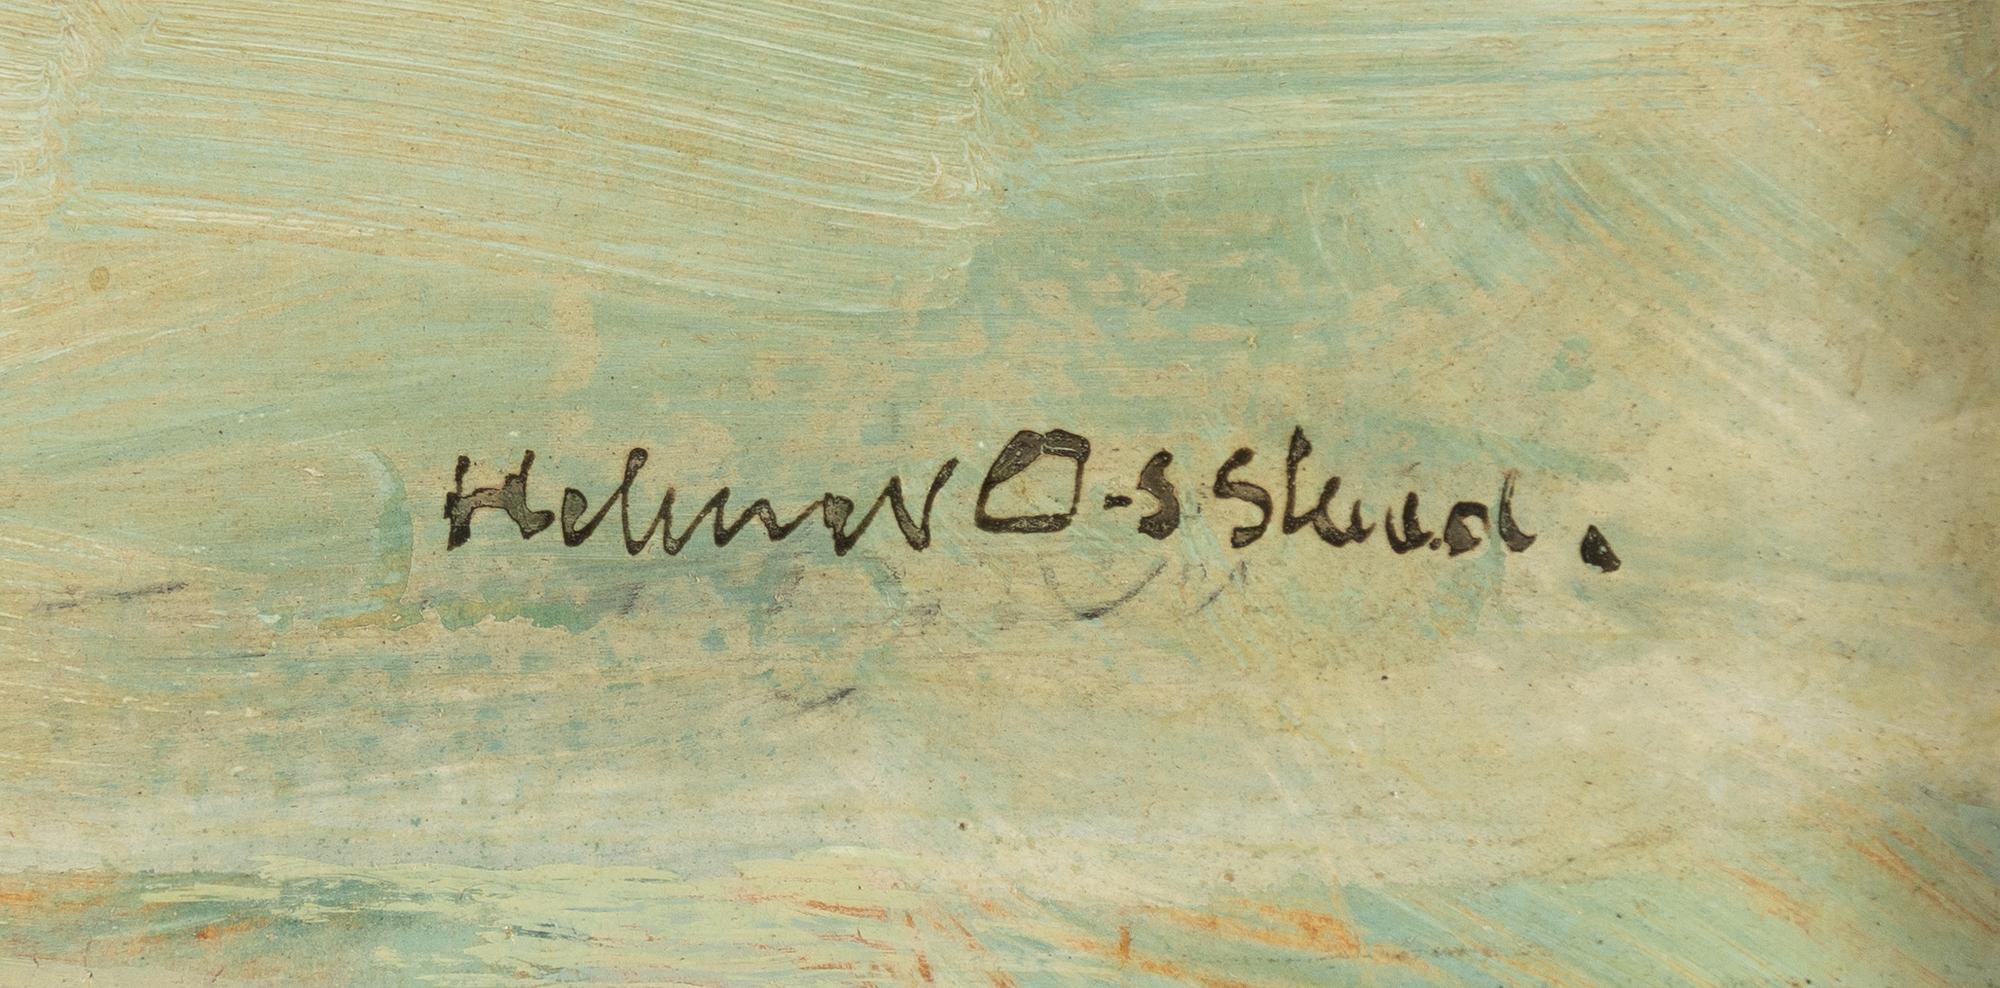 Helmer O-sslund.